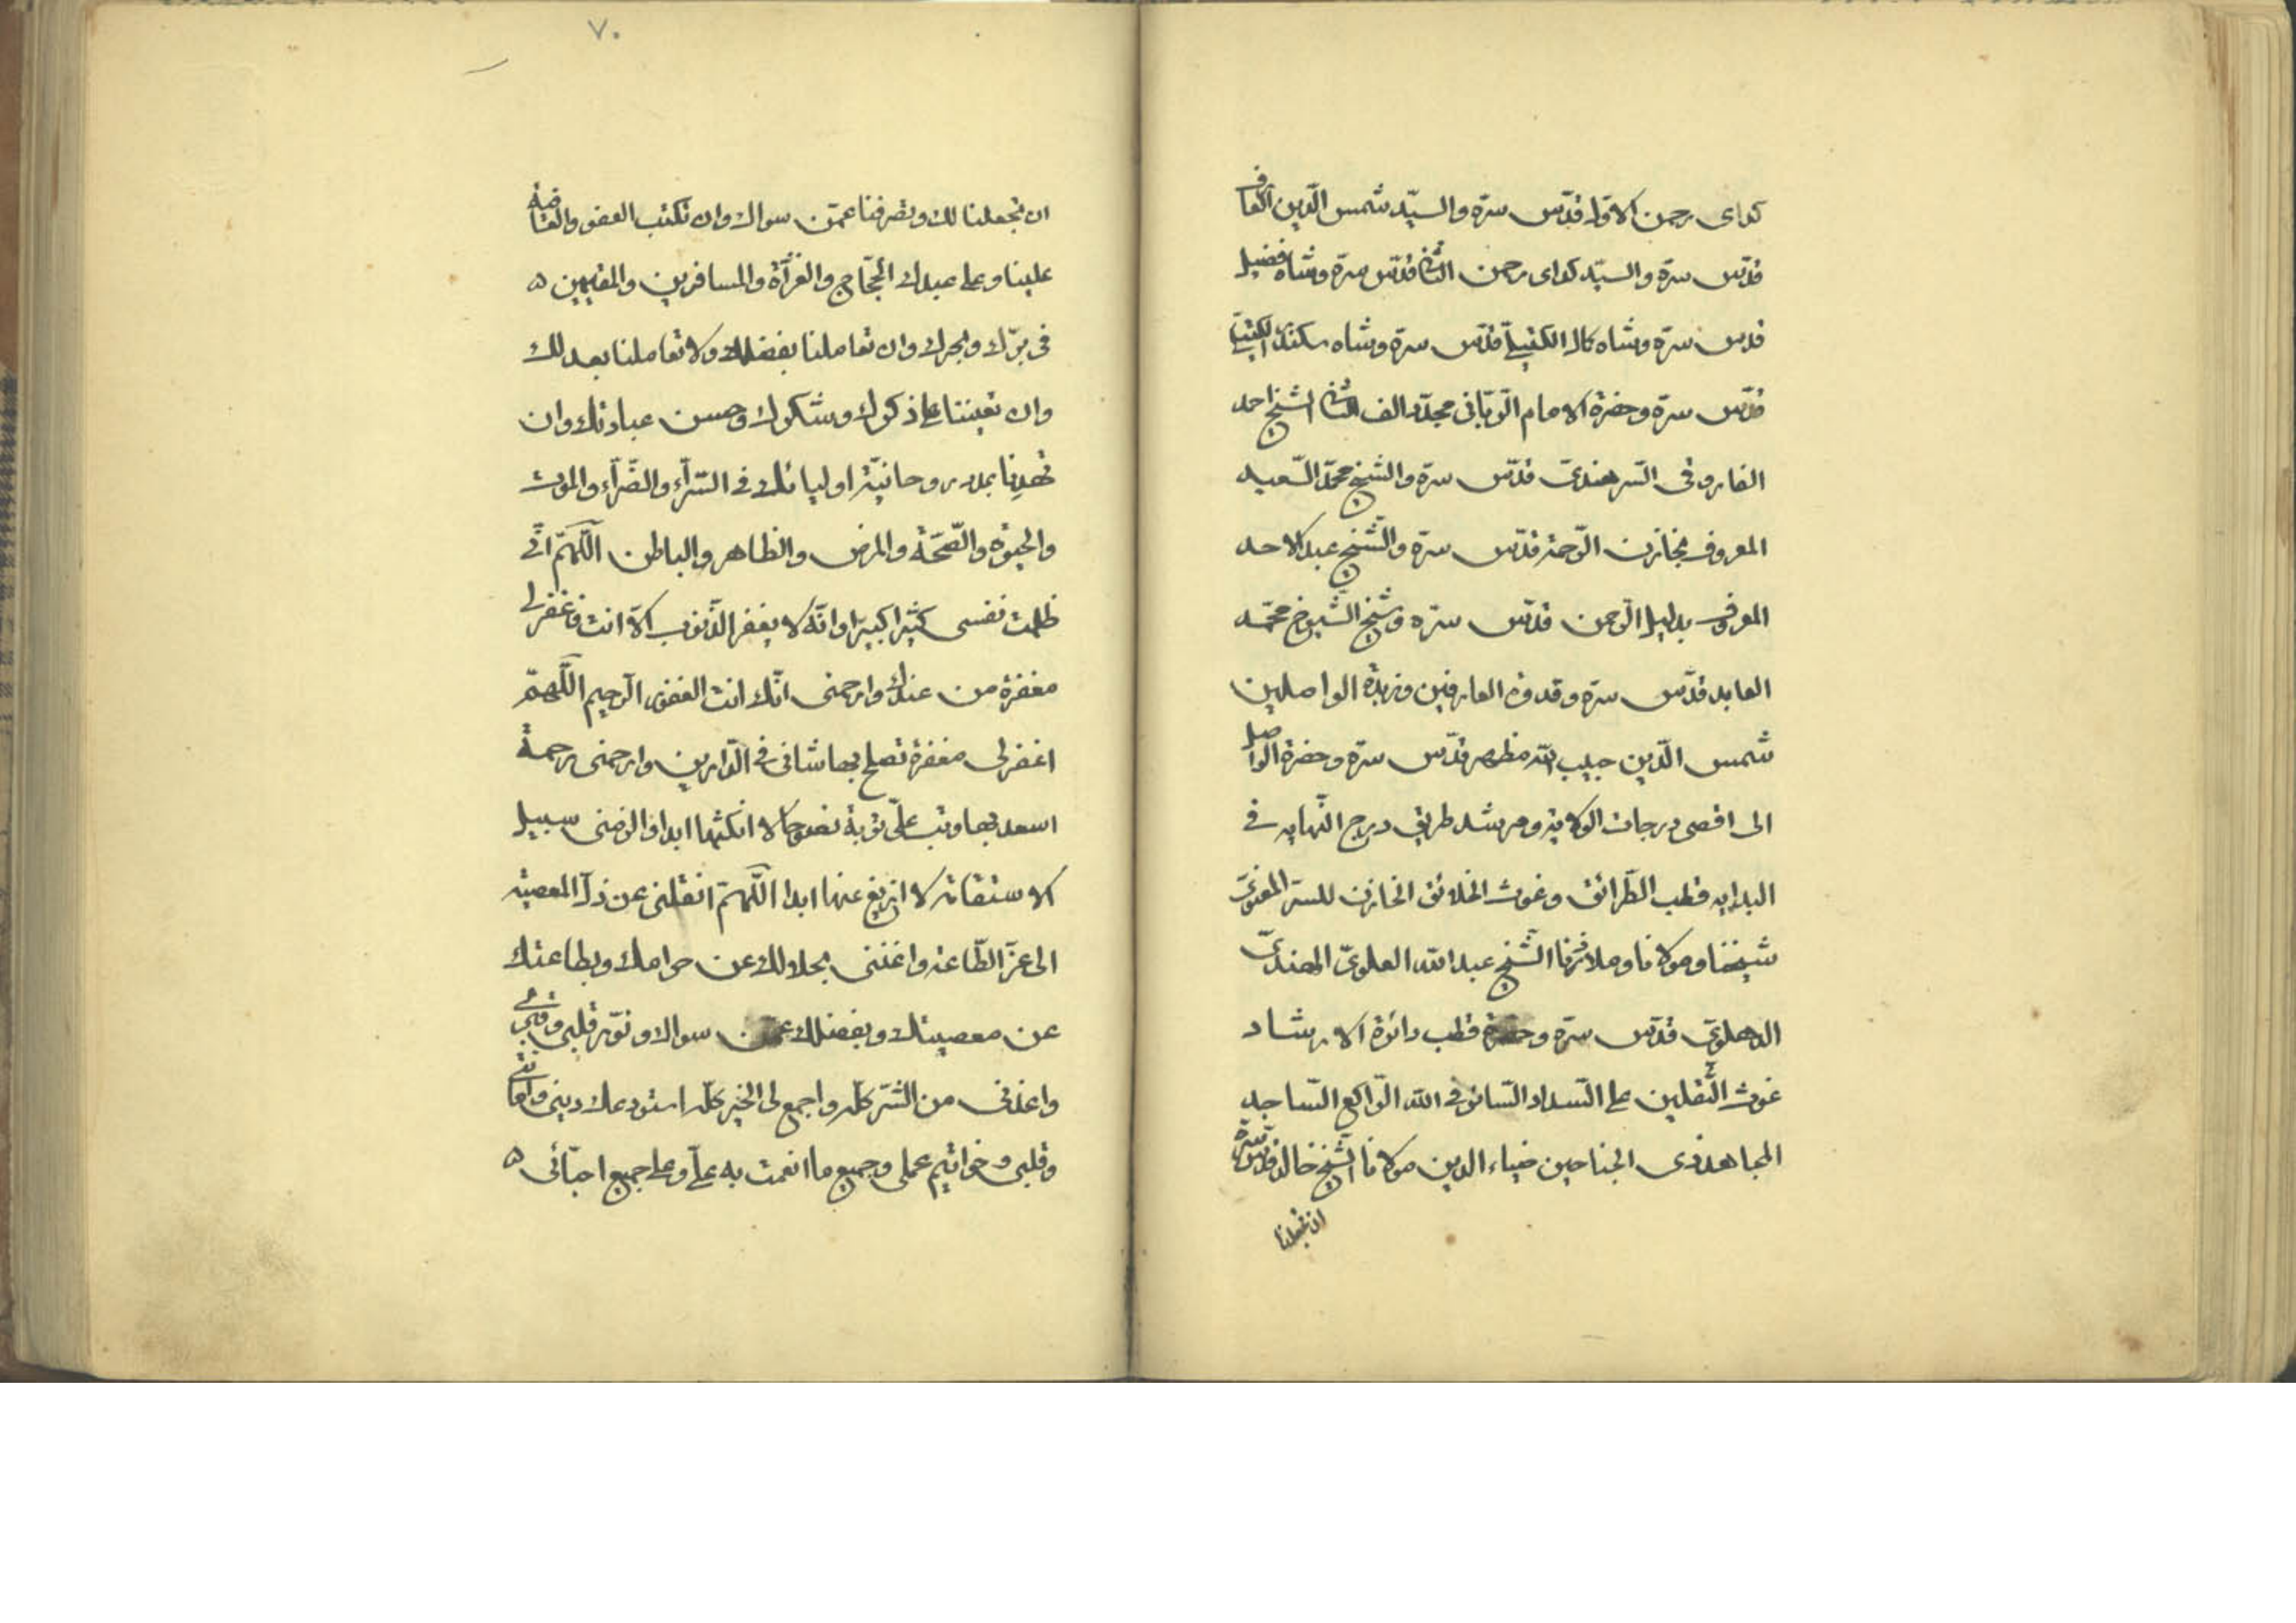 كداى رحمن الاول قدّس سرّه والسيّد شمس الدّين العارف
قدّس سرّه والسيّد كداى رحمن الثانى قدّس سرّه وشاه فضيل
قدس سرّه وشاه كمال الكتيلىّ قدّس سرّه وشاه سكندر الكتيلىّ
قدّس سرّه وحضرة الامام الرّبّانى مجدّد الف الثانى الشيخ احمد
الفاروقى السّرهندىّ قدّس سرّه والشّيخ محمّد السّعيد
المعروف بخازن الرّحمة قدّس سرّه والشّيخ عبد الاحد
المعروف بدليل الرّحمن قدّس سرّه وشيخ الشّيوخ محمّد
العابد قدّس سرّه وقدوة العارفين وزبدة الواصلين
شمس الدّين حبيب الله مظهر قدّس سرّه وحضرة الواصل
الى اقصى درجات الولاية ومرشد طريق درج النّهايه فى
البدايه قطب الطّرائق وغوث الخلائق الخازن للسرّ المعنوىّ
شيخنا ومولانا وملاذنا الشّيخ عبد الله العلوىّ الهندىّ
الدهلوىّ قدّس سرّه وحضرة قطب دائرة الارشاد
غوث الثّقلين على السّداد السّائر فى الله الرّاكع السّاجد
المجاهد ذى الجناحين ضياء الدين مولانا الشّيخ خالد قدّس سرّه
ان تجعلنا
٧٠
ان تجعلنا لك وتصرفنا عمّن سواك وان تكتب العفو والعافية
علينا وعلى عبيدك الحجّاج والغزآة والمسافرين والمقيمين ه
فى برّك وبحرك وان تعاملنا بفضلك ولا تعاملنا بعدلك
وان تعيننا على ذكرك وشكرك وحسن عبادتك وان
تهدنا بمدد روحانيّة اوليائك فى السّرآء والضّرآء والموت
والحيوة والصّحّة والمرض والظاهر والباطن اللّهمّ انّى
ظلمت نفسى كثيرا كبيرا وانّه لا يغفر الذّنوب الّا انت فاغفرلى
مغفرة من عندك وارحمنى انّك انت الغفور الرّحيم اللّهمّ
اغفرلى مغفرة تصلح بها شانى فى الدّارين وارحمنى رحمة
اسعد بها وتب علىّ توبة نصوحا لا انكثها ابدا والزمنى سبيل
الاستقامة لا ازيغ عنها ابدا اللّهمّ انقلنى عن ذلّ المعصية
الى عزّ الطّاعة واغننى بحلالك عن حرامك وبطاعتك
عن معصيتك وبفضلك عمّن سواك ونوّر قلبى وقبرى
واعذنى من الشّرّ كلّه واجمع لى الخير كلّه استودعك دينى وامانتى
وقلبى وخواتيم عملى وجميع ما انعمت به علىّ وعلى جميع احبّائى ه